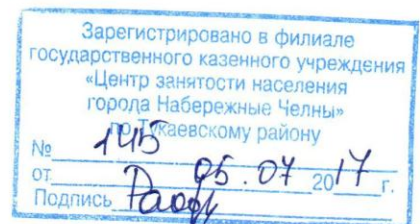 Зарегистрировано в филиале
государственного казенного учреждения
«Центр занятости населения
города Набережные Челны»
по Тукаевскому району
№ 145
от 05.07 2017 г.
Подпись